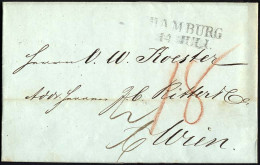 HAMBURG
14 JULI
Herrn O. W. Koester
Addr. Herrn J. C. Ritter & Co
18
Wien.